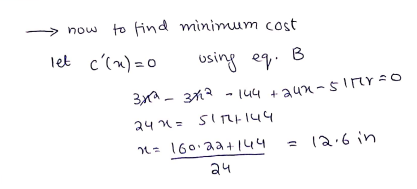 → now to find minimum cost
let c'(x)=0 using eq. B
3x² - 3x² - 144 + 24x - 51πr = 0
24x = 51π+144
x = 160.22+144 / 24 = 12.6 in